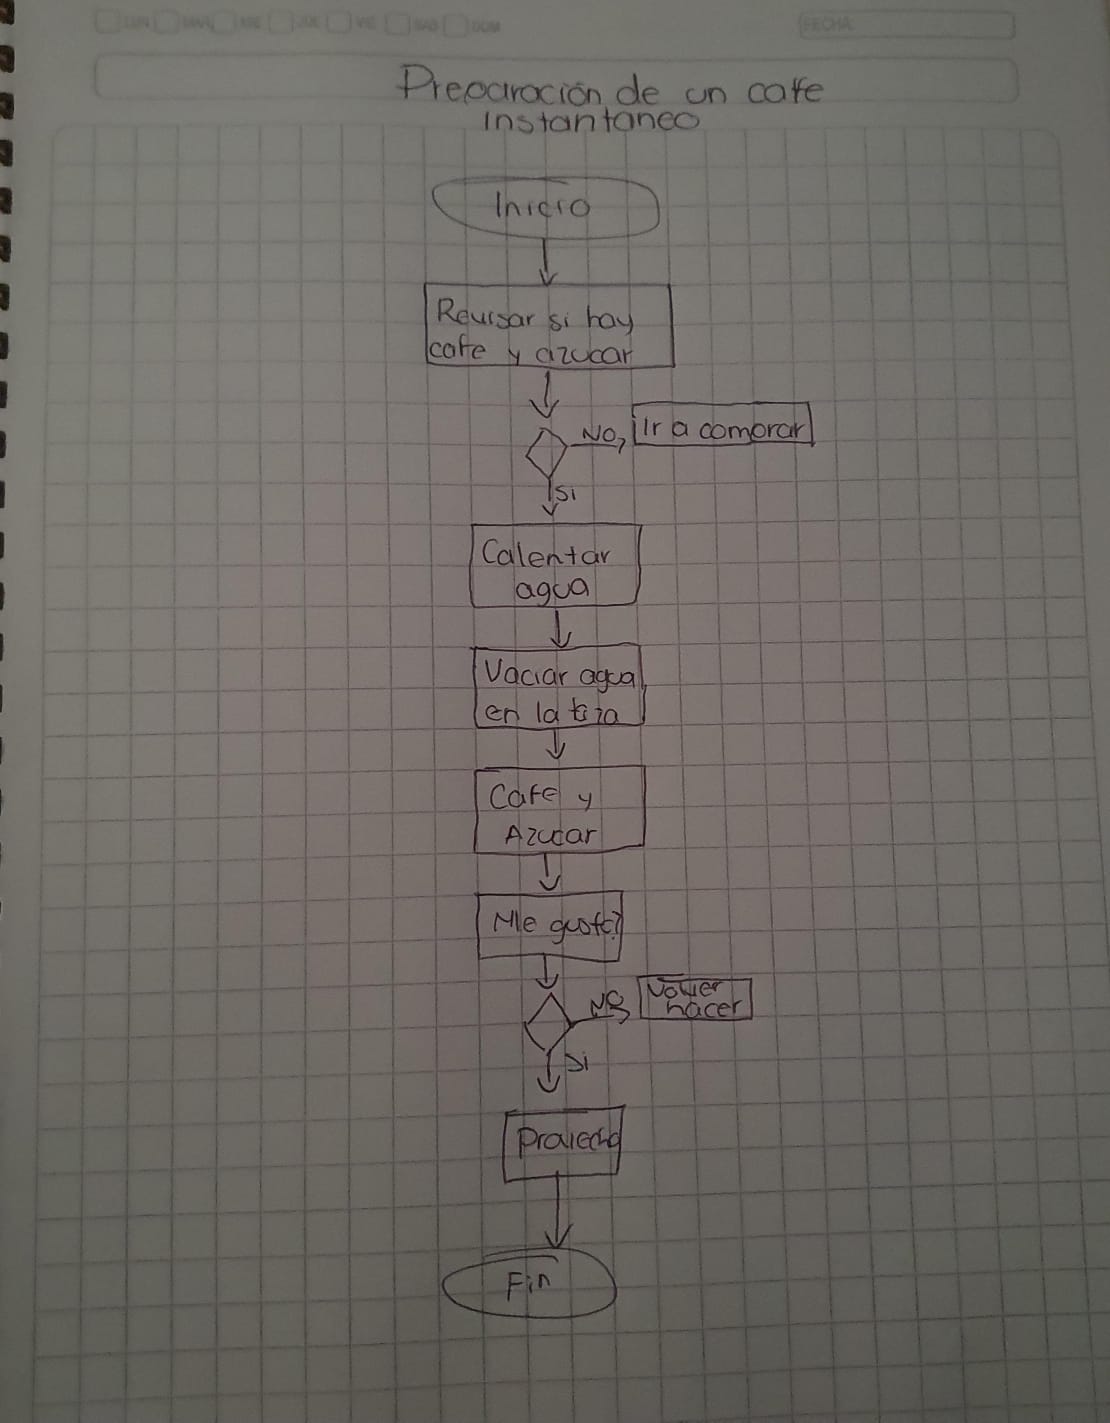 LUN MAR MIE JUE VIE SAB DOM
FECHA
Preparación de un cafe
instantaneo
Inicio
Revisar si hay
cafe y azucar
NO, Ir a comprar
Si
Calentar
agua
Vaciar agua
en la
Cafe y
Azucar
Me gusto?
NO Volver
hacer
Si
Provecho
Fin